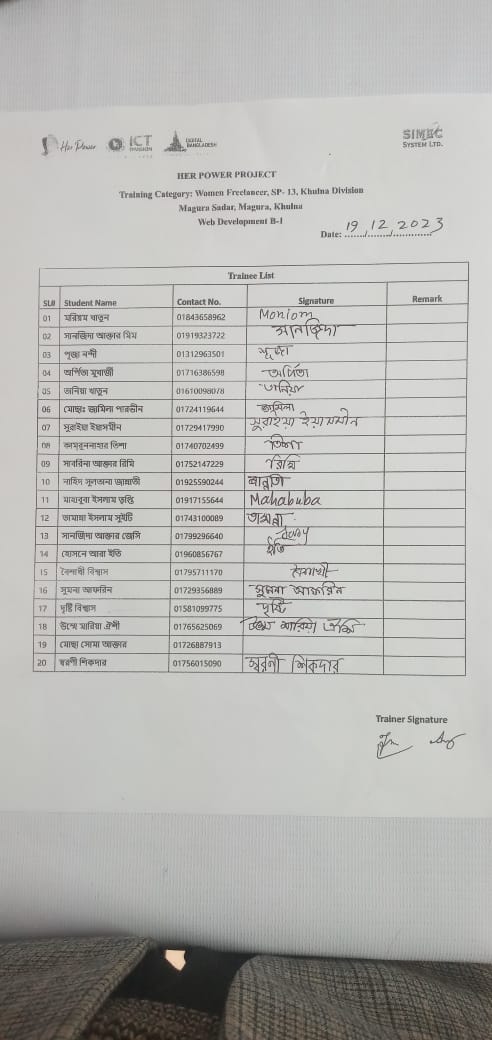 Her Power
ICT
DIVISION
DIGITAL
BANGLADESH
SIMEC
SYSTEM LTD.
HER POWER PROJECT
Training Category: Women Freelancer, SP- 13, Khulna Division
Magura Sadar, Magura, Khulna
Web Development B-1
Date: 19, 12, 2023
Trainee List
SL# Student Name Contact No. Signature Remark
01 মরিয়ম খাতুন 01843658962 Moniom
02 সানজিদা আক্তার মিম 01919323722 সানজিদা
03 পূজা নন্দী 01312963501 পূজা
04 অর্পিতা মুখার্জী 01716386598 অর্পিতা
05 তানিয়া খাতুন 01610098078 তানিয়া
06 মোছাঃ জামিলা পারভীন 01724119644 জামিলা
07 সুরাইয়া ইয়াসমীন 01729417990 সুরাইয়া ইয়াসমীন
08 কামরুননাহার তিশা 01740702499 তিশা
09 সাবরিনা আক্তার রিমি 01752147229 রিমি
10 নাহিদ সুলতানা জান্নাতী 01925590244 জান্নাতি
11 মাহাবুবা ইসলাম তৃপ্তি 01917155644 Mahabuba
12 তামান্না ইসলাম সুইটি 01743100089 তামান্না
13 সানজিদা আক্তার জেসি 01799296640
14 হোসনে আরা ইতি 01960856767 ইতি
15 বৈশাখী বিশ্বাস 01795711170 বৈশাখী
16 সুমনা আফরিন 01729356889 সুমনা আফরিন
17 দৃষ্টি বিশ্বাস 01581099775 দৃষ্টি
18 উম্মে মারিয়া ঐশী 01765625069 উম্মে মারিয়া ঐশি
19 মোছা সোমা আক্তার 01726887913
20 স্বরণী শিকদার 01756015090 স্বরনী শিকদার
Trainer Signature